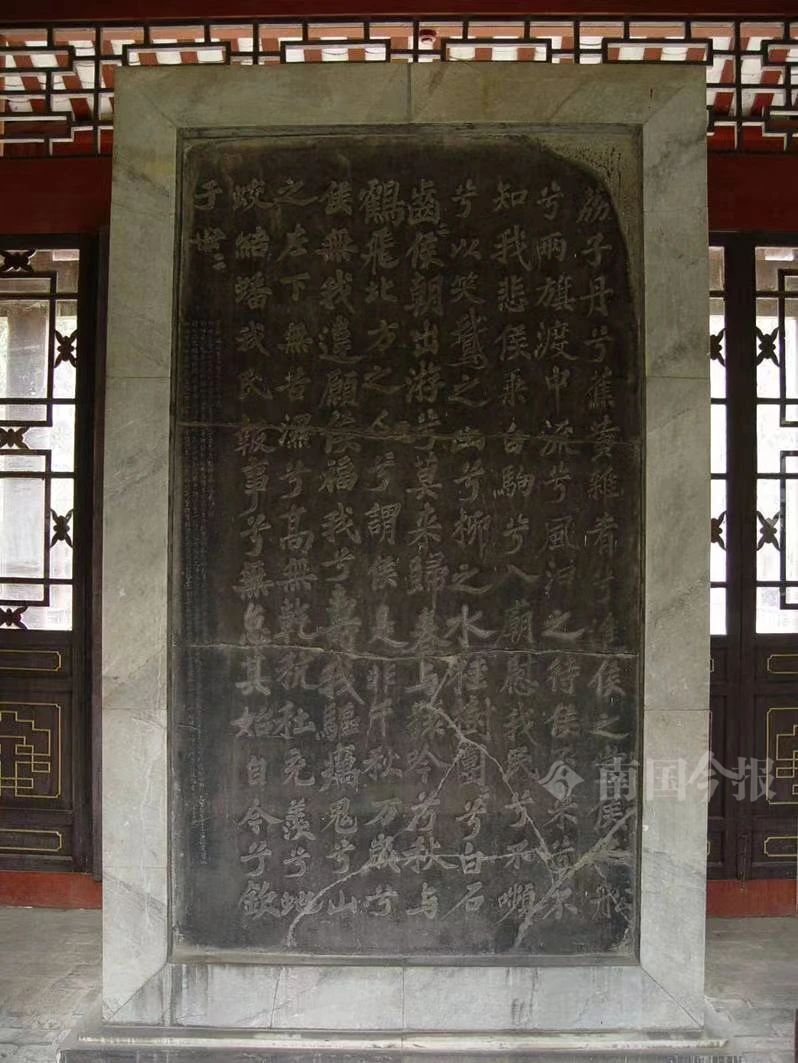 荔子丹兮蕉黃雜肴兮進侯之堂侯之船
兮兩旗渡中流兮風汩之待侯不來兮不
知我悲侯乘白駒兮入廟慰我民兮不嚬
兮以笑鵝之山兮柳之水桂樹團〻兮白石
齒〻侯朝出游兮莫来歸春与猨吟兮秋与
鶴飛北方之人兮謂侯是非千秋万歲兮
侯無我違願侯福我兮壽我驅癘鬼兮山
之左下無苦濕兮髙無乾秔稌充羨兮虵
蛟結蟠我民報事兮無怠其始自今兮欽
于世〻
南国今报